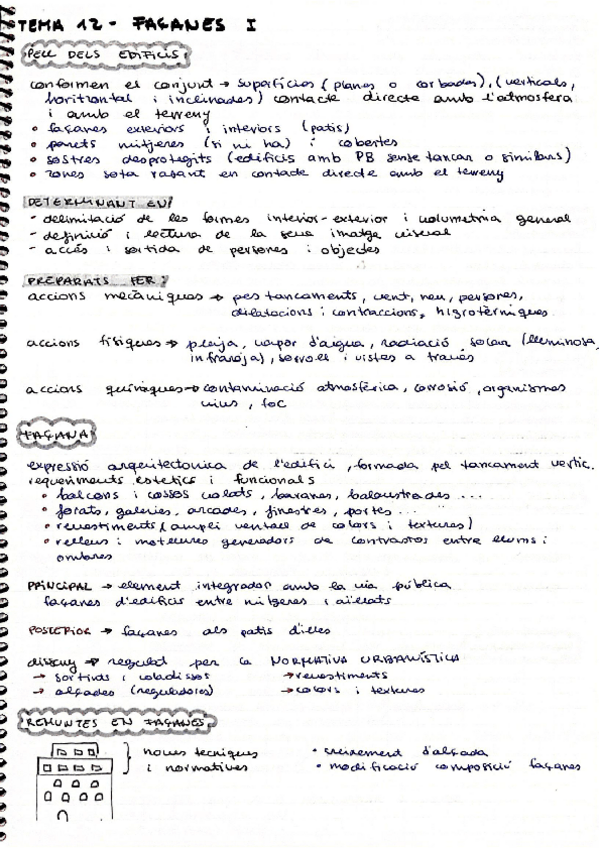 TEMA 12 - FAÇANES I
PELL DELS EDIFICIS:
conformen el conjunt → superfícies (planes o corbades), (verticals,
horitzontal i inclinades) contacte directe amb l'atmosfera
i amb el terreny
• façanes exteriors i interiors (patis)
• parets mitjeres (si ni ha) i cobertes
• sostres desprotegits (edificis amb PB sense tancar o similars)
• zones sota rasant en contacte directe amb el terreny
DETERMINANT EN:
- delimitació de les formes interior-exterior i volumetria general
- definició i lectura de la seua imatge visual
- accés i sortida de persones i objectes
PREPARATS PER:
accions mecàniques → pes tancaments, vent, neu, persones,
dilatacions i contraccions, higrotèrmiques
accions físiques → pluja, vapor d'aigua, radiació solar (lluminosa,
infraroja), sorolls i vistes a través
accions químiques → contaminació atmosfèrica, corrosió, organismes
vius, foc
FAÇANA
expressió arquitectonica de l'edifici, formada pel tancament vertic.
requeriments estetics i funcionals
• balcons i cossos volats, baranes, balaustrades ...
• forats, galeries, arcades, finestres, portes ...
• revestiments (ampli ventall de colors i textures)
• relleus i motllures generadors de contrastos entre llums i
ombres
PRINCIPAL → element integrador amb la via pública
façanes d'edificis entre mitgeres i aïllats
POSTERIOR → façanes als patis d'illes
disseny → regulat per la NORMATIVA URBANÍSTICA
→ sortints i voladissos → revestiments
→ alçades (reguladores) → colors i textures
REMUNTES EN FAÇANES
noves tecniques • creixement d'alçada
i normatives • modificació composició façanes